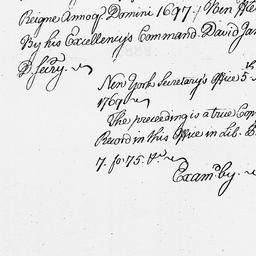 Reigne Annoq Domini 1697. / Ben ffle
By his Excellency's Command. David Jam
D. Secry.
New York Secretary's Office 5th
1769
The preceding is a true Cop
Record in this Office in Lib. B
7. fo: 75. &c
Exam'd by.